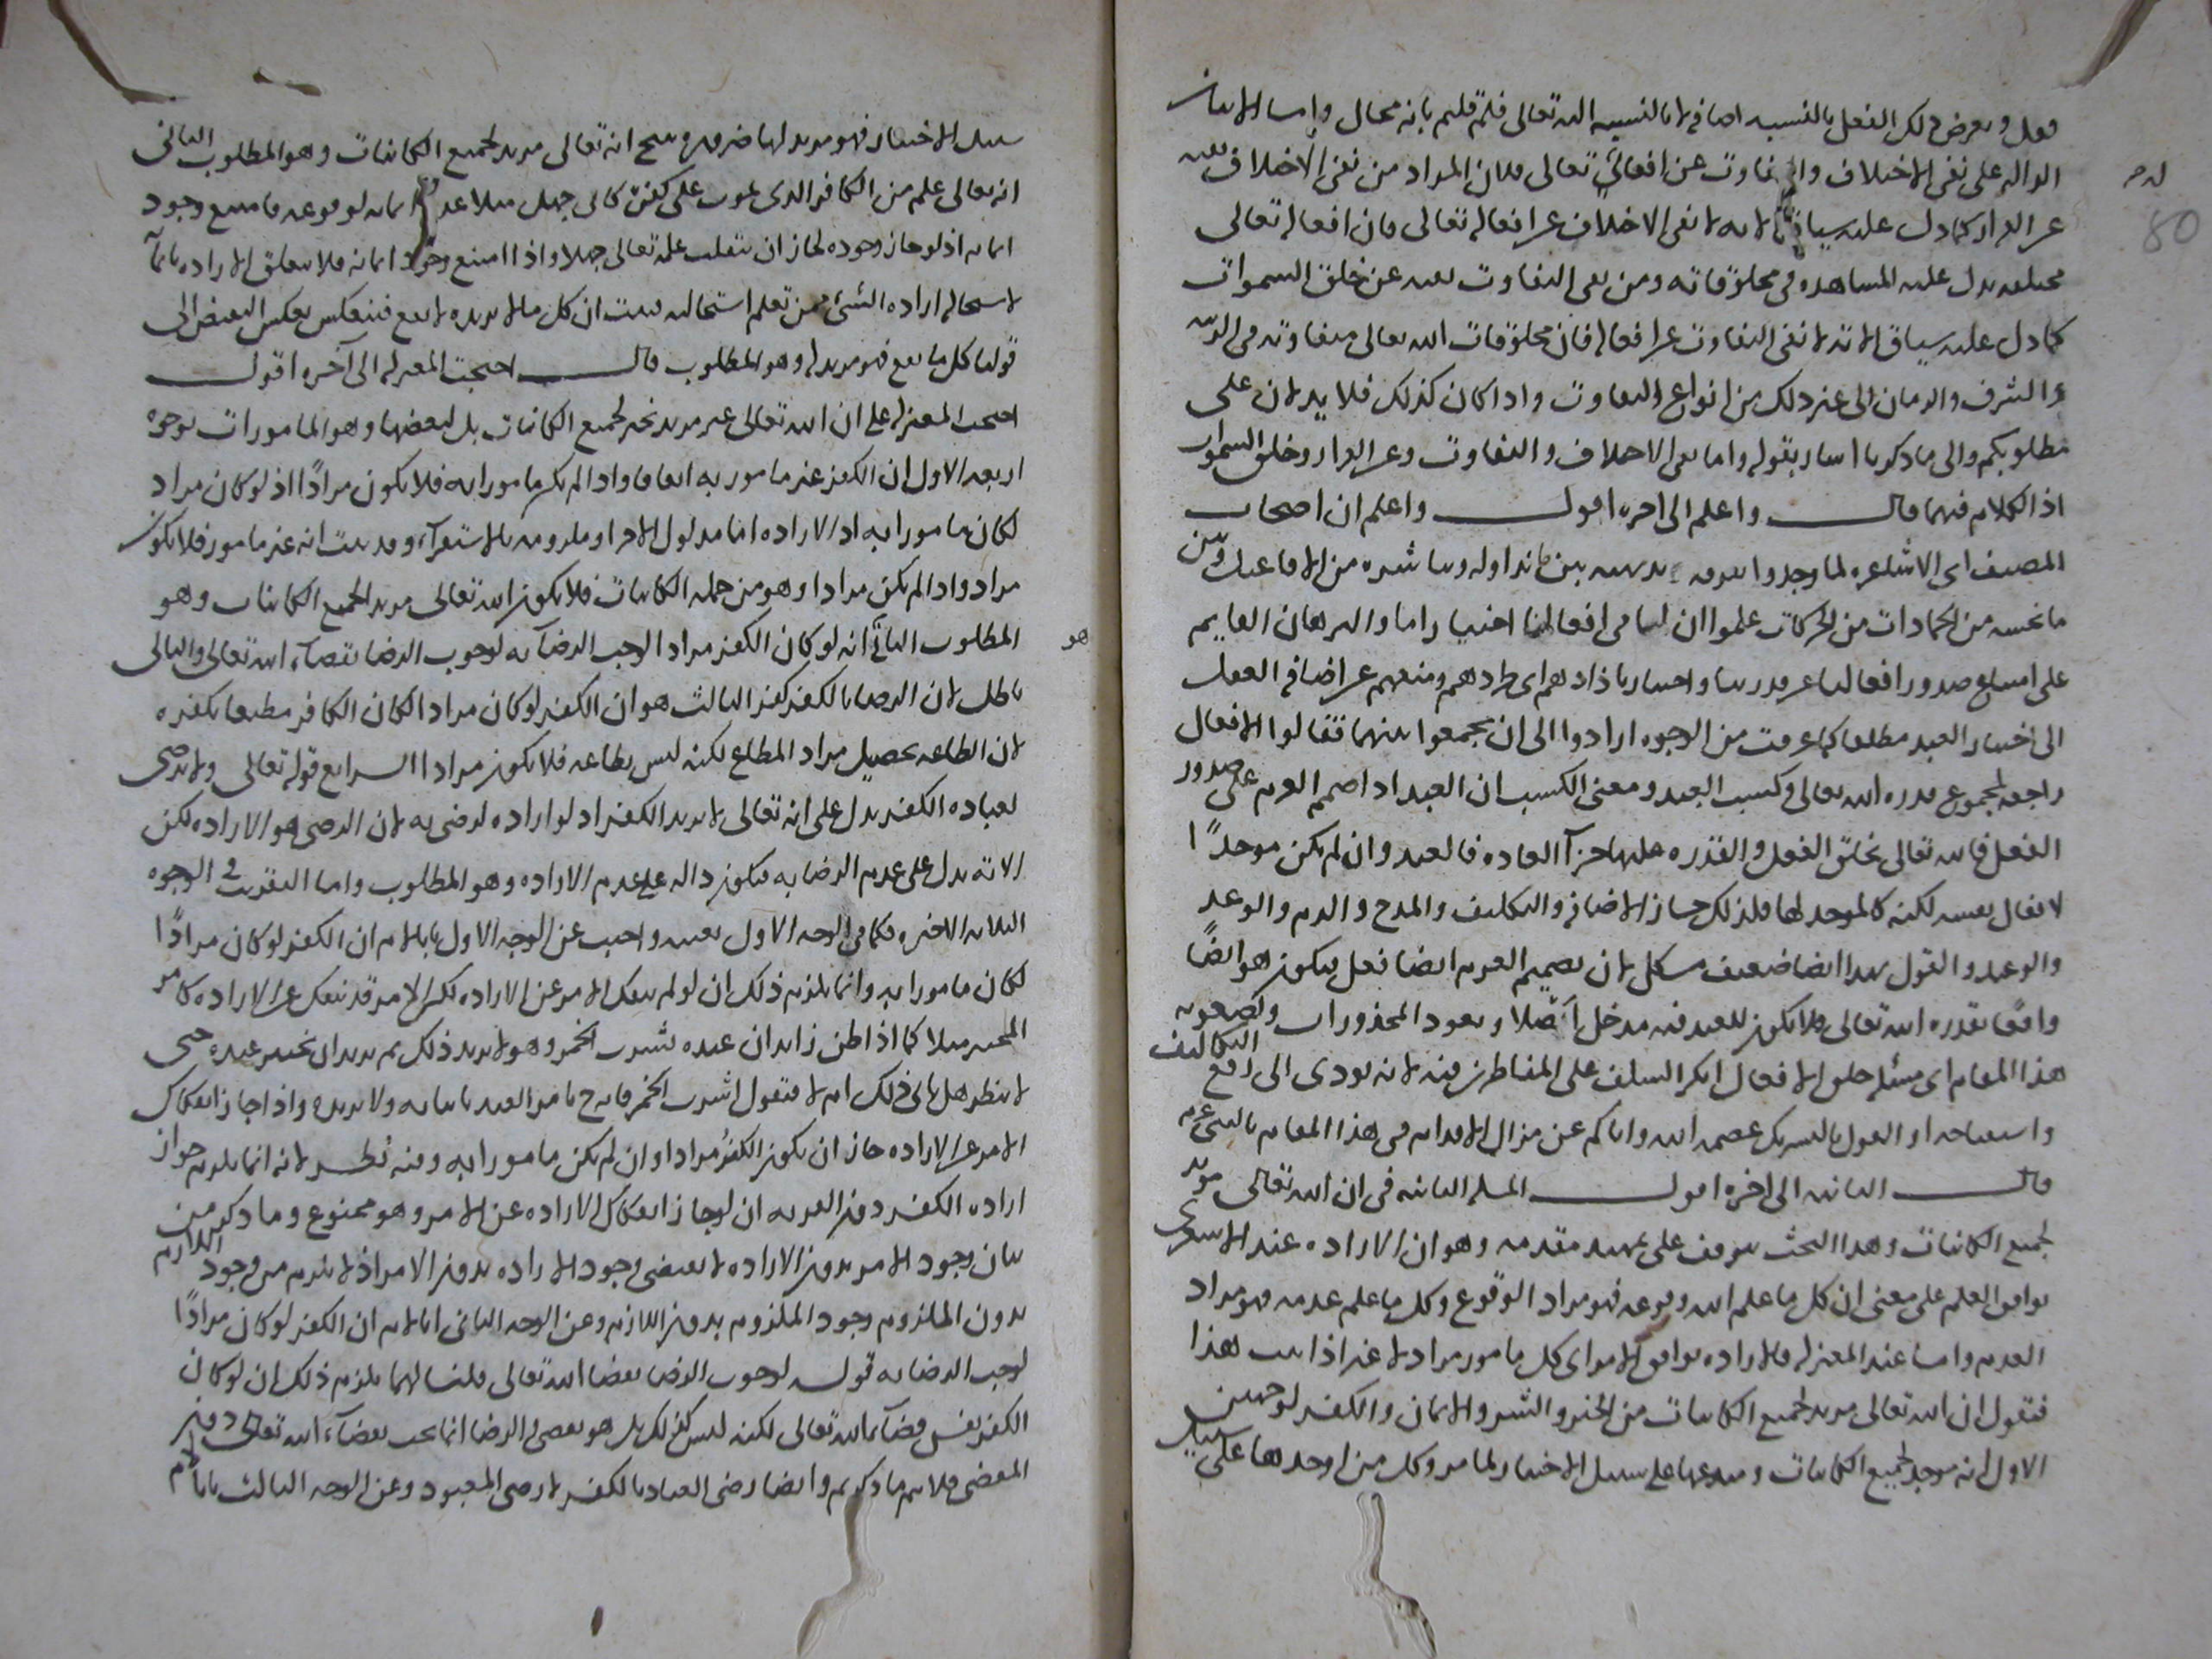 فعل وبعرض ذلك الفعل بالنسبة اضافة لا بالنسبة اليه تعالى فلم قلتم بانه محال واما الايات
الدالة على نفى الاختلاف والتفاوت عن افعاله تعالى فلان المراد من نفى الاختلاف نفيه
عن القران كما دل عليه سياق الاية لا نفى الاختلاف عن افعاله تعالى فان افعاله تعالى
مختلفة يدل عليه المشاهدة فى مخلوقاته ومن نفى التفاوت نفيه عن خلق السموات
كما دل عليه سياق الاية لا نفى التفاوت عن افعاله فان مخلوقات الله تعالى متفاوتة فى الرتبة
والشرف والزمان الى غير ذلك من انواع التفاوت واذا كان كذلك فلا يدلان على
مطلوبكم والى ما ذكرنا اشار بقوله واما نفى الاختلاف والتفاوت وعن القران وخلق السموات
اذ الكلام فيهما قال واعلم الى اخره اقول واعلم ان اصحاب
المصنف اى الاشاعرة لما وجدوا تفرقة بديهية بين ما نزاوله ونباشره من الافاعيل وبين
ما نحسه من الجمادات من الحركات علموا ان لنا فى افعالنا اختيارا ما والبرهان القايم
على امتناع صدور افعالنا عن قدرتنا واختيارنا ذادهم اى طردهم ومنعهم عن اضافة الفعل
الى اختيار العبد مطلقا كما عرفت من الوجوه ارادوا الى ان يجمعوا بينهما فقالوا الافعال
راجعة لمجموع قدرة الله تعالى وكسب العبد ومعنى الكسب ان العبد اذا صمم العزم على صدور
الفعل فالله تعالى يخلق الفعل والقدرة عليها جزاء العادة فالعبد وان لم يكن موجدًا
لافعال نفسه لكنه كالموجد لها فلذلك جاز الاضافة والتكليف والمدح والذم والوعد
والوعيد والقول بهذا ايضا ضعيف مشكل لان تصميم العزم ايضا فعل فيكون هو ايضًا
واقعًا بقدرة الله تعالى ولا يكون للعبد فيه مدخل اصلا وبعود المحذورات ولصعوبة
هذا المقام اى مسئلة خلق الافعال انكر السلف على المناظرين فيه لانه يودى الى رفع التكاليف
واستقباحه او القول بالشريك عصمنا الله واياكم عن مزال الاقدام فى هذا المقام بالنبى عم
قال الثانية الى اخره اقول المسئلة الثانية فى ان الله تعالى مريد
لجميع الكاينات وهذا البحث يتوقف على تمهيد مقدمة وهو ان الارادة عند الاشعرى
توافق العلم على معنى ان كل ما علم الله وقوعه فهو مراد الوقوع وكل ما علم عدمه فهو مراد
العدم واما عند المعتزلة فالارادة توافق الامر اى كل مامور مراد لا غير اذا ثبت هذا
فنقول ان الله تعالى مريد لجميع الكاينات من الخير والشر والايمان والكفر لوجهين
الاول انه موجد لجميع الكاينات ومبدعها على سبيل الاختيار لما مر وكل من اوجدها على سبيل
سبيل الاختيار فهو مريد لها ضرورة ينتج انه تعالى مريد لجميع الكاينات وهو المطلوب الثانى
انه تعالى علم من الكافر الذى يموت على كفره كابى جهل مثلا عدم ايمانه لوقوعه فامتنع وجود
ايمانه اذ لو جاز وجوده لجاز ان ينقلب علمه تعالى جهلا واذا امتنع وجود ايمانه فلا يتعلق الارادة بايمانه
لاستحالة ارادة الشىء ممن تعلم استحالته فثبت ان كل ما لا يريده لا يقع فينعكس بعكس النقيض الى
قولنا كل ما يقع فهو مريد له وهو المطلوب قال احتجت المعتزلة الى آخره اقول
احتجت المعتزلة على ان الله تعالى غير مريد لجميع الكاينات بل لبعضها وهو المامورات بوجوه
اربعة الاول ان الكفر غير مامور به اتفاقا واذا لم يكن مامورا به فلا يكون مرادًا اذ لو كان مراد
لكان مامورا به اذ الارادة اما مدلول الامر او ملزومه بالاستقراء وقد ثبت انه غير مامور فلا يكون
مراد واذا لم يكن مرادا وهو من جملة الكاينات فلا يكون الله تعالى مريد لجميع الكاينات وهو
المطلوب الثانى انه لو كان الكفر مرادا لوجب الرضاء به لوجوب الرضا بقضاء الله تعالى والتالى
باطل لان الرضا بالكفر كفر الثالث هو ان الكفر لو كان مرادا لكان الكافر مطيعا بكفره
لان الطاعة تحصيل مراد المطاع لكنه ليس بطاعة فلا يكون مرادا الرابع قوله تعالى ولا يرضى
لعباده الكفر يدل على انه تعالى لا يريد الكفر اذ لو اراده لرضى به لان الرضى هو الارادة لكن
الاية تدل على عدم الرضا به فتكون دالة على عدم الارادة وهو المطلوب واما التقريب فى الوجوه
الثلاثة الاخيرة فكما فى الوجه الاول بعينه واجيب عن الوجه الاول بانا لا نم ان الكفر لو كان مرادًا
لكان مامورا به وانما يلزم ذلك ان لو لم ينفك الامر عن الارادة لكن الامر قد ينفك عن الارادة كامر
المختبر مثلا كما اذا ظن زيد ان عبده يشرب الخمر وهو لا يريد ذلك ثم يريد ان يختبر عبده حتى
لا ينظر هل ياتى ذلك ام لا فيقول اشرب الخمر فانه ح يامر العبد باتيانه ولا يريده واذا جاز انفكاك
الامر عن الارادة جاز ان يكون الكفر مرادا وان لم يكن مامورا به وفيه نظر لانه انما يلزم جواز
ارادة الكفر دون الامر به ان لو جاز انفكاك الارادة عن الامر وهو ممنوع وما ذكر من
بيان وجود الامر بدون الارادة لا يقتضى وجود الارادة بدون الامر اذ لا يلزم من وجود اللازم
بدون الملزوم وجود الملزوم بدون اللازم وعن الوجه الثانى انا لا نم ان الكفر لو كان مرادًا
لوجب الرضا به قوله لوجوب الرضا بقضا الله تعالى قلنا لهما يلزم ذلك ان لو كان
الكفر نفس قضاء الله تعالى لكنه ليس كذلك بل هو مقضى والرضا انما يجب بقضاء الله تعالى دون
المقضى فلا يتم ما ذكرتم وايضا رضى العباد بالكفر لا رضى المعبود وعن الوجه الثالث بانا لا نم
هو
80